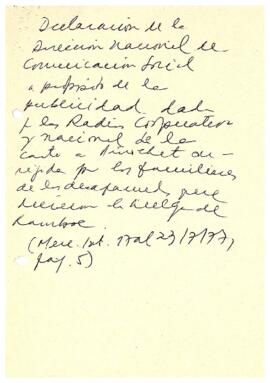 Declaración de la
Dirección Nacional de
Comunicación Social
a propósito de la
publicidad dada
p las Radios Cooperativa
y Nacional de la
carta a Pinochet di-
rigida por los familiares
de los desaparecidos que
hicieron la huelga de
hambre.
(Merc. Int. 17 al 23/7/77,
pag. 5)